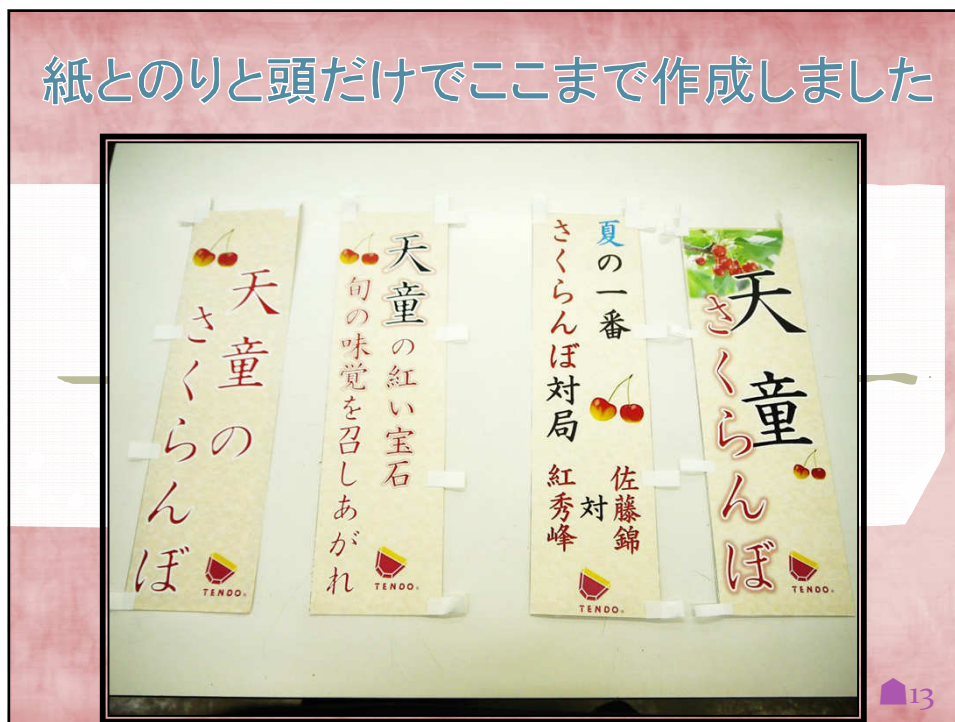 紙とのりと頭だけでここまで作成しました
天童の
さくらんぼ
TENDO®
天童の紅い宝石
旬の味覚を召しあがれ
TENDO®
夏の一番
さくらんぼ対局
佐藤錦
対
紅秀峰
TENDO®
天童
さくらんぼ
TENDO®
13